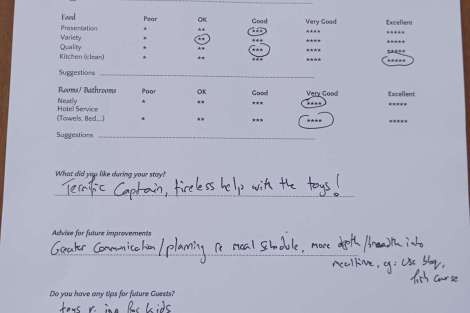 Food Poor OK Good Very Good Excellent
Presentation * ** *** **** *****
Variety * ** *** **** *****
Quality * ** *** **** *****
Kitchen (clean) * ** *** **** *****
Suggestions
Rooms/ Bathrooms Poor OK Good Very Good Excellent
Neatly * ** *** **** *****
Hotel Service
(Towels, Bed...) * ** *** **** *****
Suggestions
What did you like during your stay?
Terrific Captain, tireless help with the toys!
Advise for future improvements
Greater Communication/planning re meal schedule, more depth/breadth into
mealtime, eg: use bbq,
fish course
Do you have any tips for future Guests?
toys for kids